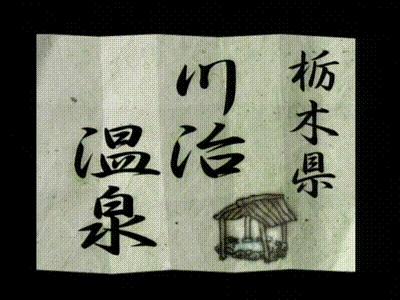 栃木県
川治
温泉